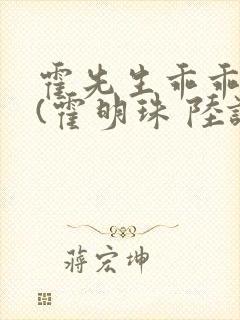 霍先生乖乖
(霍明珠 陸
蔣宏坤